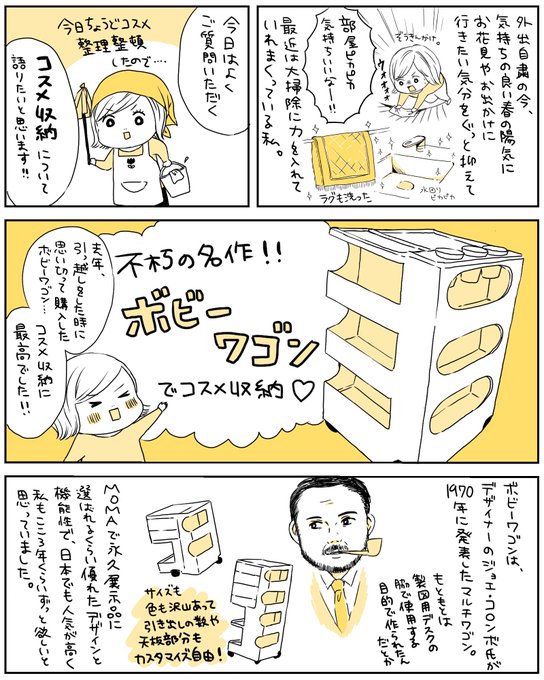 外出自粛の今、
気持ちの良い春の陽気に
お花見やお出かけに
行きたい気分をぐっと抑えて
ぞうきんがけ。
ウオオオオ
部屋ピカピカ
気持ちいいなー!!
最近は大掃除に力を入れて
いれまくっている私。
ラグも洗った
水回り
ピカピカ
今日はよく
ご質問いただく
今日ちょうどコスメ
整理整頓
したので…
コスメ収納について
語りたいと思います!!
不朽の名作!!
ボビー
ワゴン
でコスメ収納♡
去年、
引っ越しをした時に
思い切って購入した
ボビーワゴン…
コスメ収納に
最高でした!!
ボビーワゴンは、
デザイナーのジョエ・コロンボ氏が
1970年に発表したマルチワゴン。
もともとは
製図用デスクの
脇で使用する
目的で作られたん
だとか
サイズも
色も沢山あって
引き出しの数や
天板部分も
カスタマイズ自由!
MOMAで永久展示品に
選ばれるくらい優れたデザインと
機能性で、日本でも人気が高く
私もここ5年くらいずっと欲しいと
思っていました。